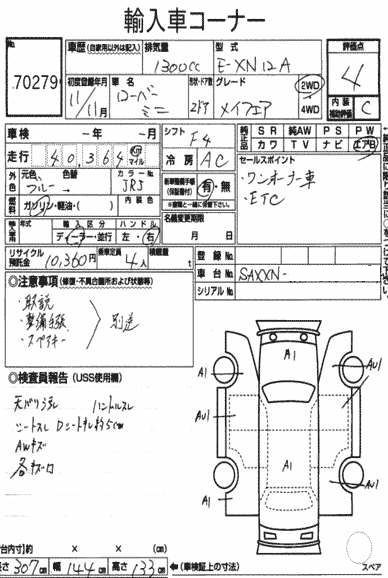 輸入車コーナー
No.
70279
車歴(自家用以外は記入)
排気量
1300cc
型式
E-XN12A
評価点
4
初度登録年月
11/11月
車名
ローバー
ミニ
形状・ドア数
2ドア
グレード
メイフェア
2WD
4WD
内装
補助評価
C
車検 ー年 ー月
走行 40,364
km
マイル
シフト
F4
冷房
AC
純正品
SR 純AW PS PW
カワ TV ナビ エアB
外色
元色、 色替
ブルー →
カラーNo.
JRJ
内装色
燃料
ガソリン・軽油・( )
新車整備手帳
(保証書付)
有・無
セールスポイント
・ワンオーナー車
・ETC
輸入車用
年式
輸入区分
ディーラー・並行
ハンドル
左・右
名義変更期限
月 日
リサイクル預託金
10,360円
乗車定員
4人
積載量
t
登録No.
車台No.
SAXXN-
シリアルNo.
◎注意事項(修復・不具合箇所および状態等)
・取説
・整備手帳
・スペアキー
別途
◎検査員報告 (USS使用欄)
天バリヨレ ハンドルスレ
シートスレ Dシートキレ約5cm
AWキズ
各キズ凹
A1
A1
AU1
A1
AU1
AU1
A1
A1
AU1
A1
荷台内寸】約 × × (cm)
長さ 307cm 幅 144cm 高さ 133cm
←(車検証上の寸法)
スペア